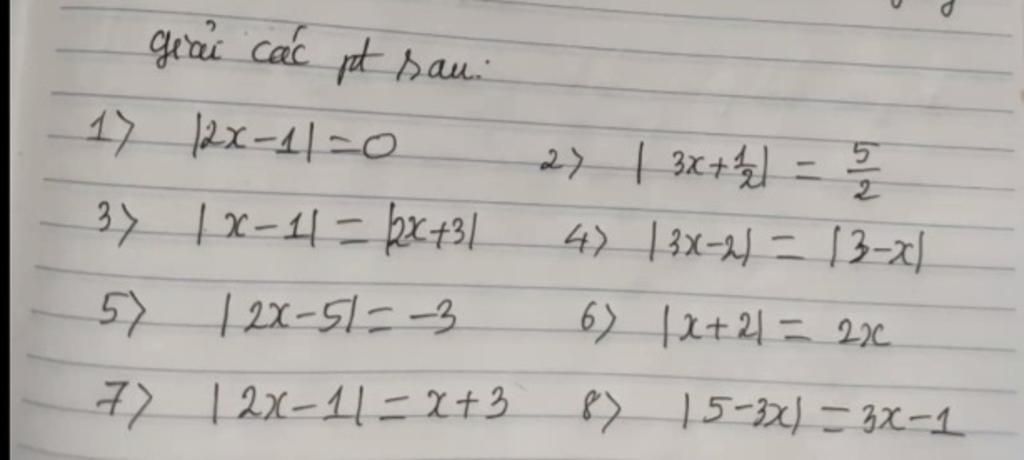 giải các pt sau:
1> |2x-1|=0 2> |3x+1/2| = 5/2
3> |x-1| = |2x+3| 4> |3x-2| = |3-x|
5> |2x-5|=-3 6> |x+2| = 2x
7> |2x-1|=x+3 8> |5-3x|=3x-1